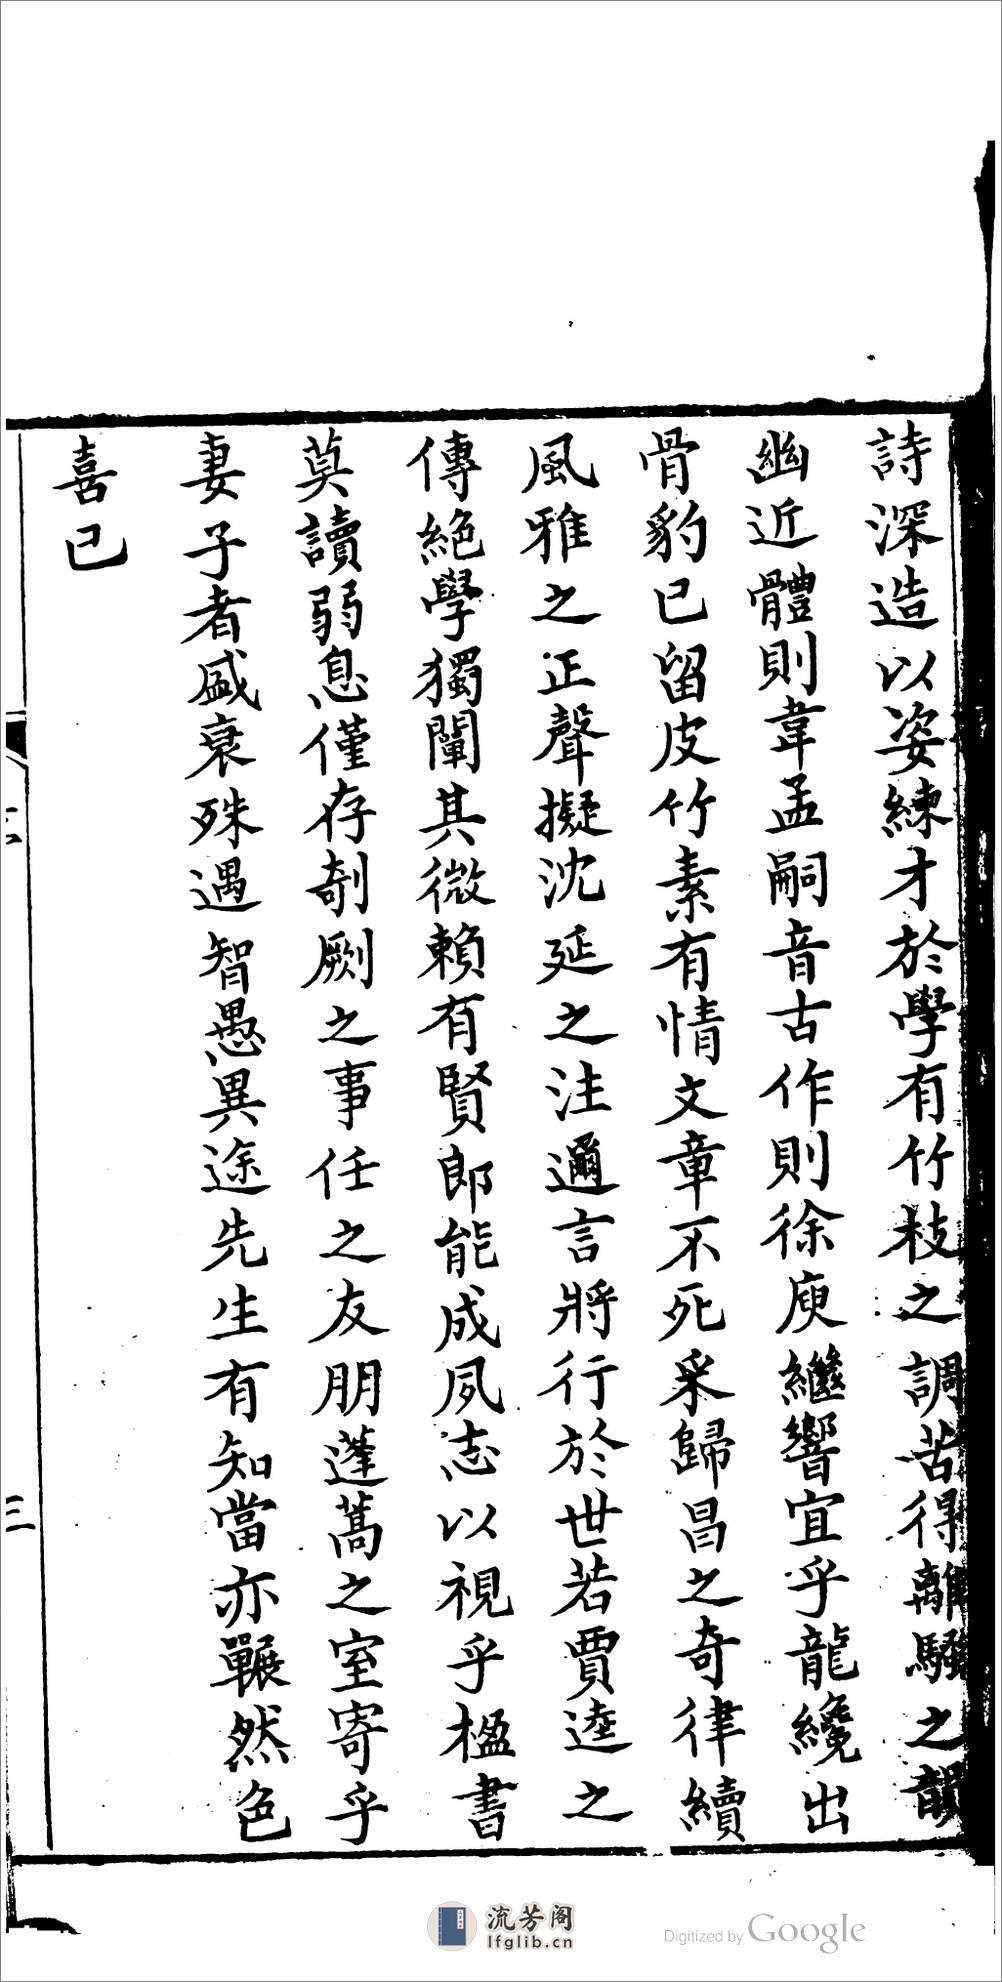 詩深造以姿練才於學有竹枝之調苦得離騷之韻
幽近體則韋孟嗣音古作則徐庾繼響宜乎龍纔出
骨豹已留皮竹素有情文章不死采歸昌之奇律續
風雅之正聲擬沈延之注邇言將行於世若賈逵之
傳絕學獨闡其微賴有賢郎能成夙志以視乎楹書
莫讀弱息僅存剞劂之事任之友朋蓬蒿之室寄乎
妻子者盛衰殊遇智愚異途先生有知當亦囅然色
喜已
三
流芳阁
lfglib.cn
Digitized by Google